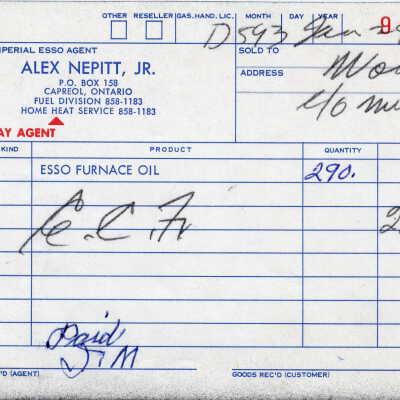 OTHER RESELLER GAS.HAND.LIC. MONTH DAY YEAR
D593 Jan 9
IMPERIAL ESSO AGENT SOLD TO
ALEX NEPITT, JR.
ADDRESS
P.O. BOX 158
CAPREOL, ONTARIO
c/o
FUEL DIVISION 858-1183
HOME HEAT SERVICE 858-1183
AY AGENT
KIND PRODUCT QUANTITY
ESSO FURNACE OIL 290.
Paid
'D (AGENT) GOODS REC'D (CUSTOMER)